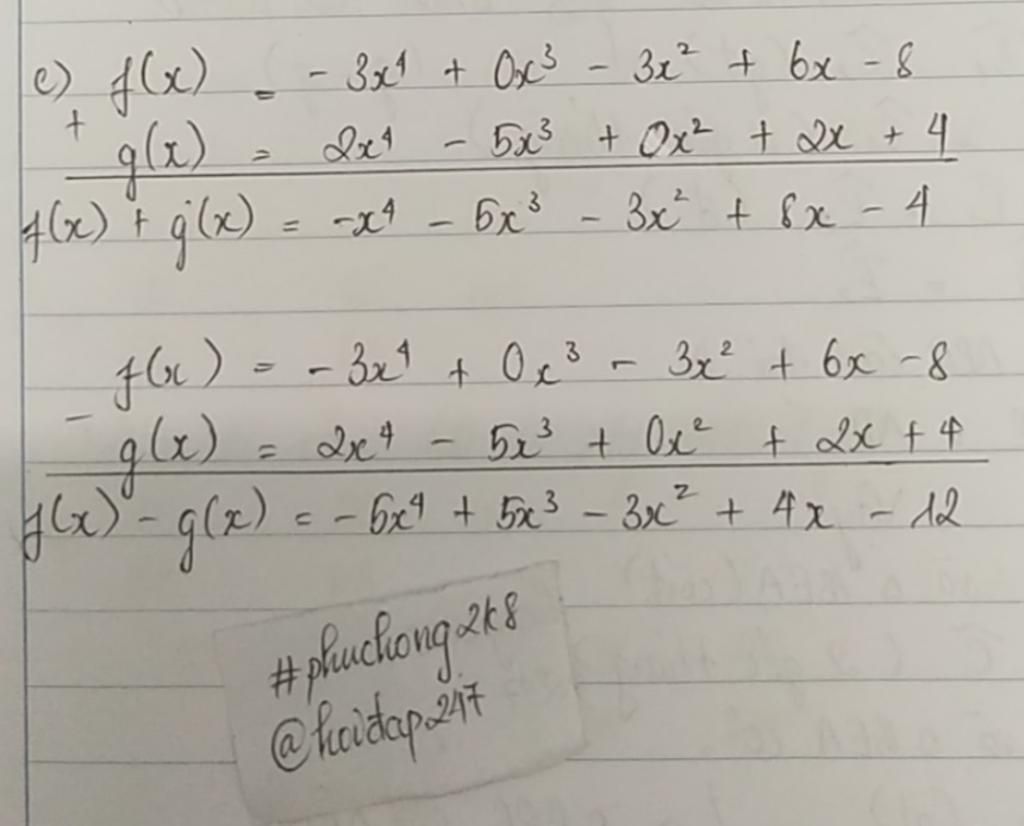 c) f(x) = - 3x⁴ + 0x³ - 3x² + 6x - 8
+
g(x) = 2x⁴ - 5x³ + 0x² + 2x + 4
f(x) + g(x) = -x⁴ - 5x³ - 3x² + 8x - 4
f(x) = - 3x⁴ + 0x³ - 3x² + 6x - 8
-
g(x) = 2x⁴ - 5x³ + 0x² + 2x + 4
f(x) - g(x) = - 5x⁴ + 5x³ - 3x² + 4x - 12
#phuchong2k8
@hoidap247